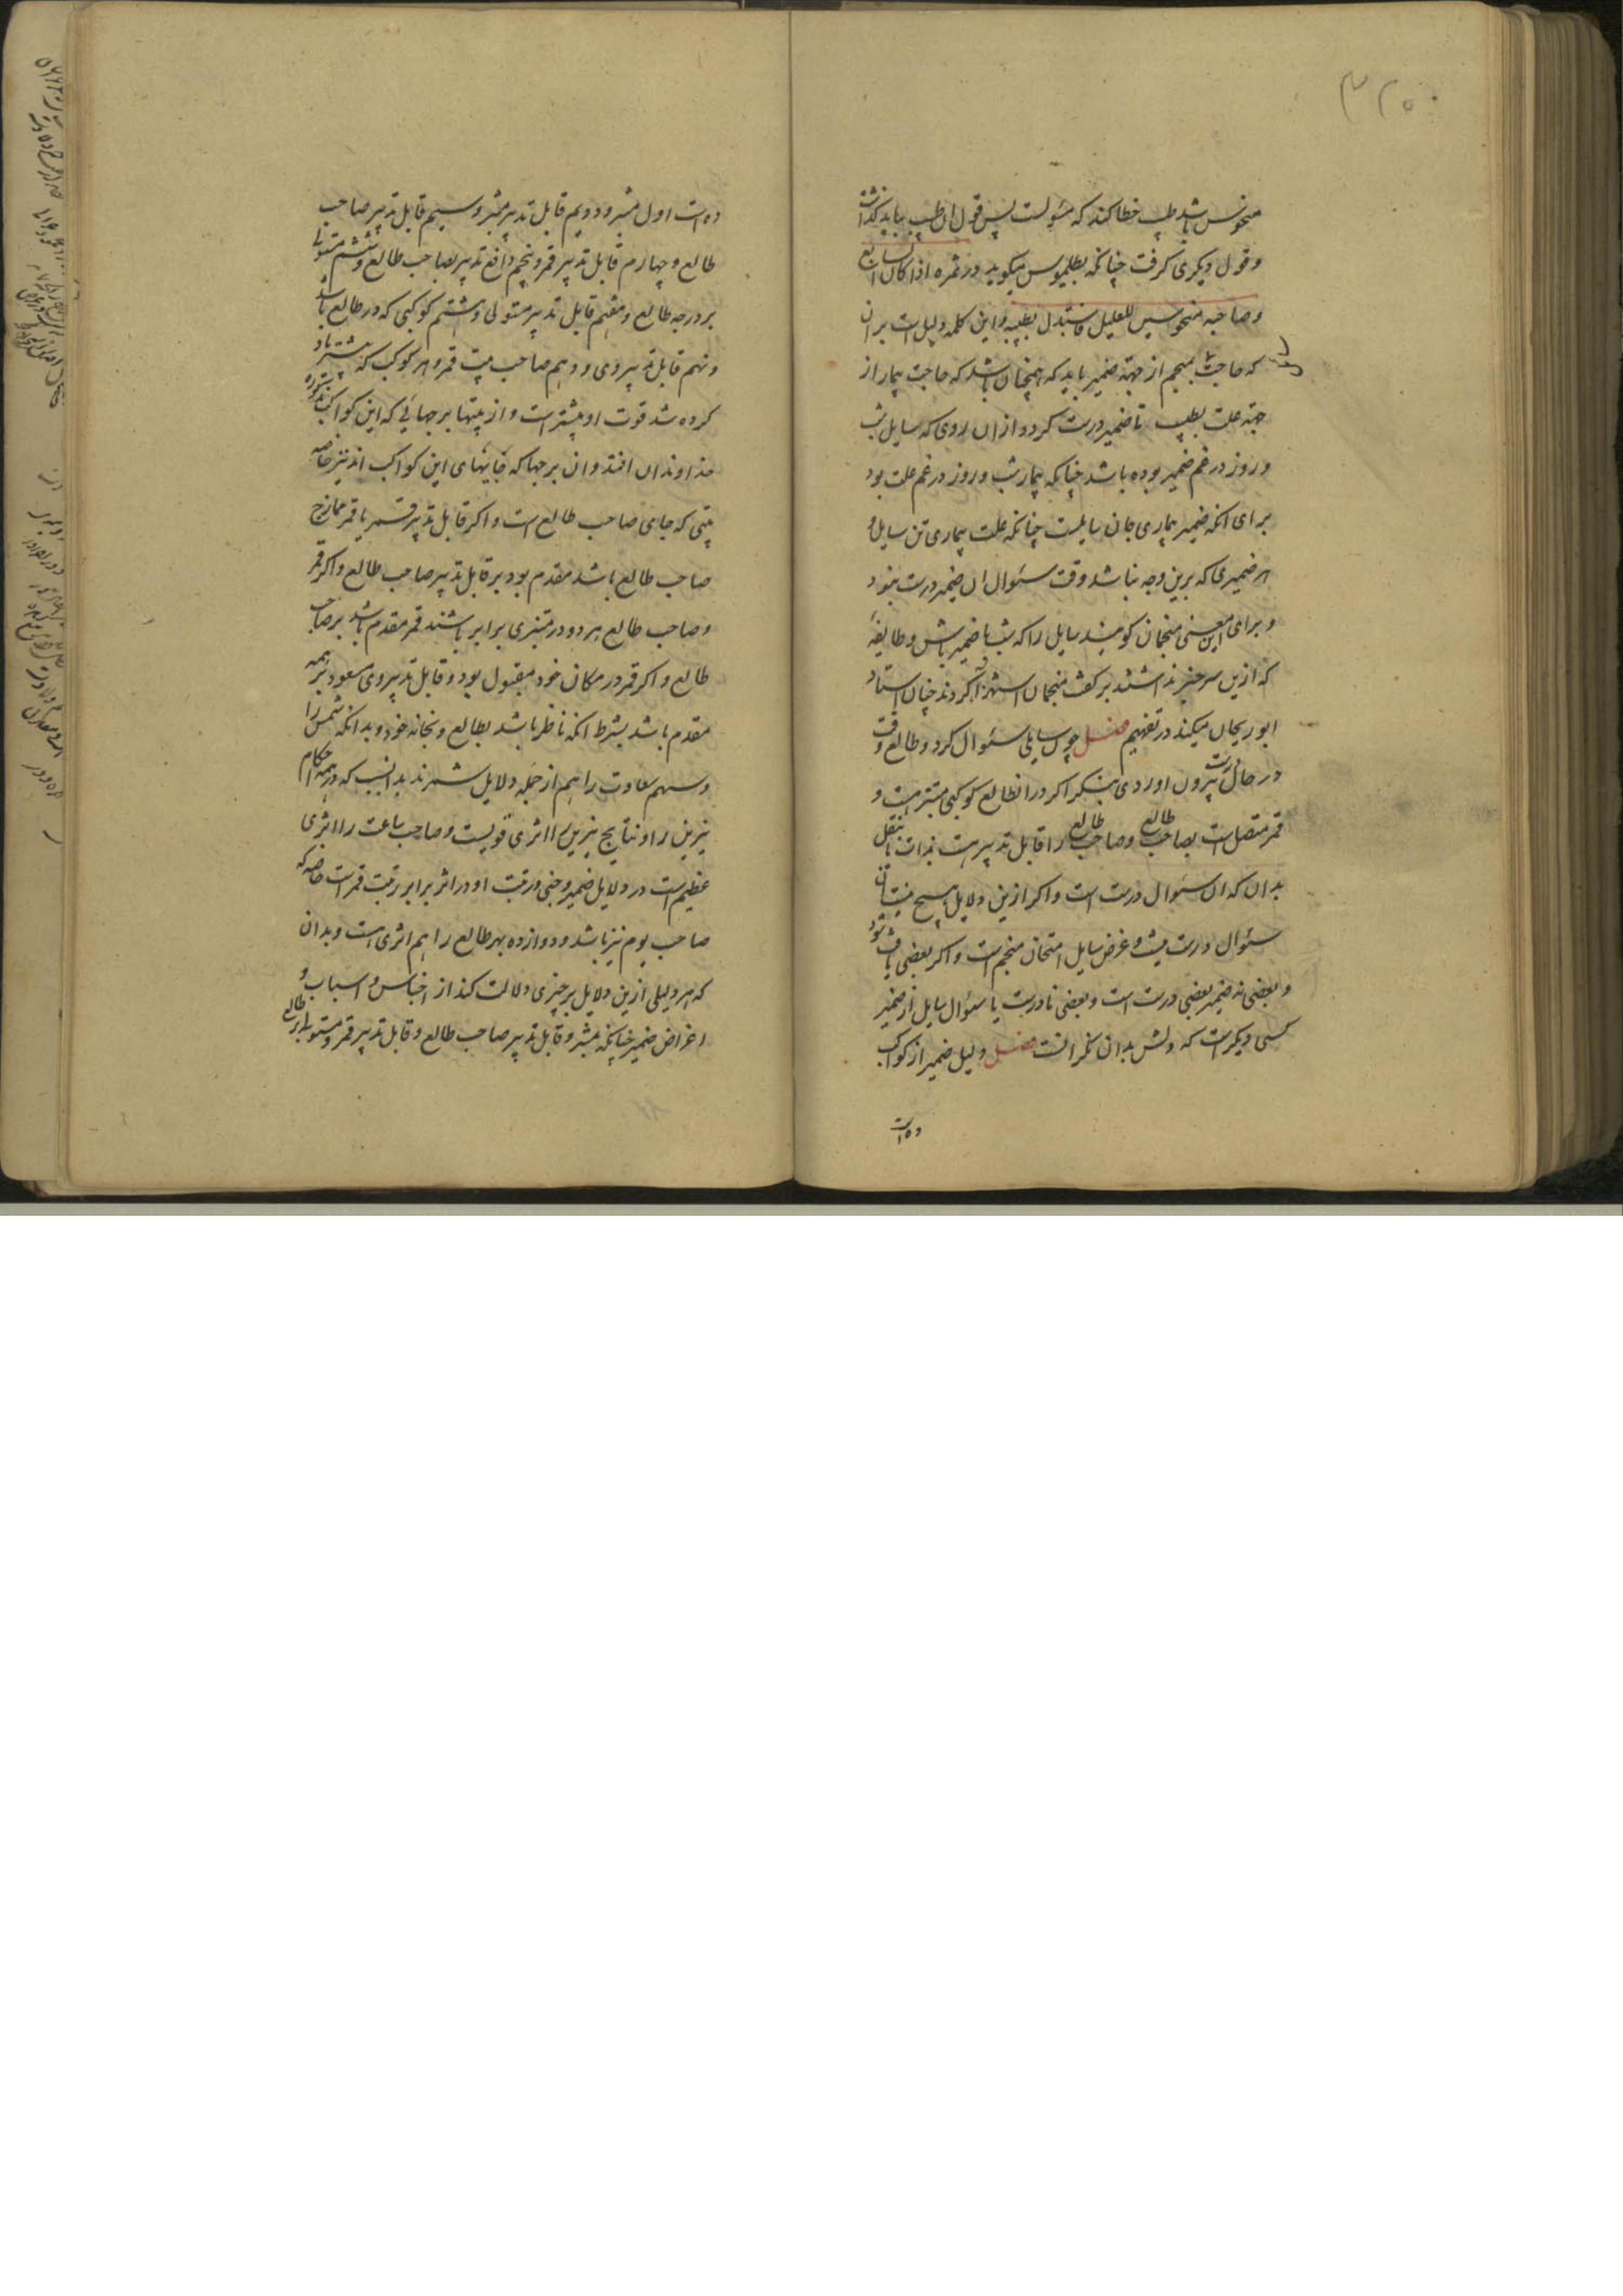 ۳۲۵
منحوس باشد طبیب خطا کند که مسئولست پس قول ان طبیب بباید گذاشت
و قول دیگری گرفت چنانکه بطلمیوس میکوید در ثمره اذا کان السابع
و صاحبه منحوسین للعلیل فاستبدل بطبیبه و این کلمه دلیل است بران
که حاجت بمنجم از جهة ضمیر باید که همچنان باشد که حاجت بیمار از
جهة علت بطبیب تا ضمیر درست کردد از ان روی که سایل شب
و روز در غم ضمیر بوده باشد چنانکه بیمار شب و روز در غم علت بود
برای انکه ضمیر بیماری جان سایلست چنانکه علت بیماری تن سایل و
هر ضمیری که برین وجه نباشد وقت سئوال ان ضمیر درست نبود
و برای این معنی منجمان کویند سایل را که شب با ضمیر باش و طایفهٔ
که ازین سر خبر نداشتند بر کفت منجمان استهزا کردند چنان استاد
ابوریحان میکند در تفهیم فصل چون سایلی سئوال کرد و طالع وقت
در حال درست بیرون اوردی بنگر اکر در ان طالع کوکبی مبتز هست و
قمر متصل است بصاحب طالع و صاحب طالع را قابل تدبیر هست بذات یا بنقل
بدان که ان سئوال درست است و اکر ازین دلایل هیچ نیست ان
سئوال درست نیست و غرض سایل امتحان منجم است و اکر بعضی یافت شود
و بعضی نه ضمیر بعضی درست است و بعضی نادرست یا سئوال سایل از ضمیر
کسی دیگر است که دلش بدان نگرانست فصل دلیل ضمیر از کواکب
ده است
ده است اول مبتز و دویم قابل تدبیر مبتز و سیم قابل تدبیر صاحب
طالع و چهارم قابل تدبیر قمر و پنجم دافع تدبیر بصاحب طالع و ششم مستولی
بر درجه طالع و هفتم قابل تدبیر مستولی و هشتم کوکبی که در طالع باشد
و نهم قابل تدبیر وی و دهم صاحب بیت قمر و هر کوکب که بیشتر یاد
کرده شد قوت او بیشتر است و از بیتها برجهائی که این کواکب مذکوره
خداوندان افتد و ان برجها که جایهای این کواکب اند نیز خاصه
بیتی که جای صاحب طالع است و اکر قابل تدبیر قمر یا قمر ممازج
صاحب طالع باشد مقدم بود بر قابل تدبیر صاحب طالع و اکر قمر
و صاحب طالع هر دو در مبتزی برابر باشند قمر مقدم باشد بر صاحب
طالع و اکر قمر در مکان خود مقبول بود و قابل تدبیر وی مسعود بر همه
مقدم باشد بشرط انکه ناظر باشد بطالع و بخانه خود و بدانکه شمس را
و سهم سعادت را هم از جمله دلایل شمرند بدان سبب که در همه احکام
نیرین را و نتایج نیرین را اثری قویست و صاحب ساعت را اثری
عظیم است در دلایل ضمیر و خبی و رتبت او در اثر برابر رتبت قمر است خاصه که
صاحب یوم نیز باشد و دوازده بهر طالع را هم اثری هست و بدان
که هر دلیلی ازین دلایل بر چیزی دلالت کند از اجناس و اسباب و
اغراض ضمیر چنانکه مبتز و قابل تدبیر صاحب طالع و قابل تدبیر قمر و مستولی بر طالع